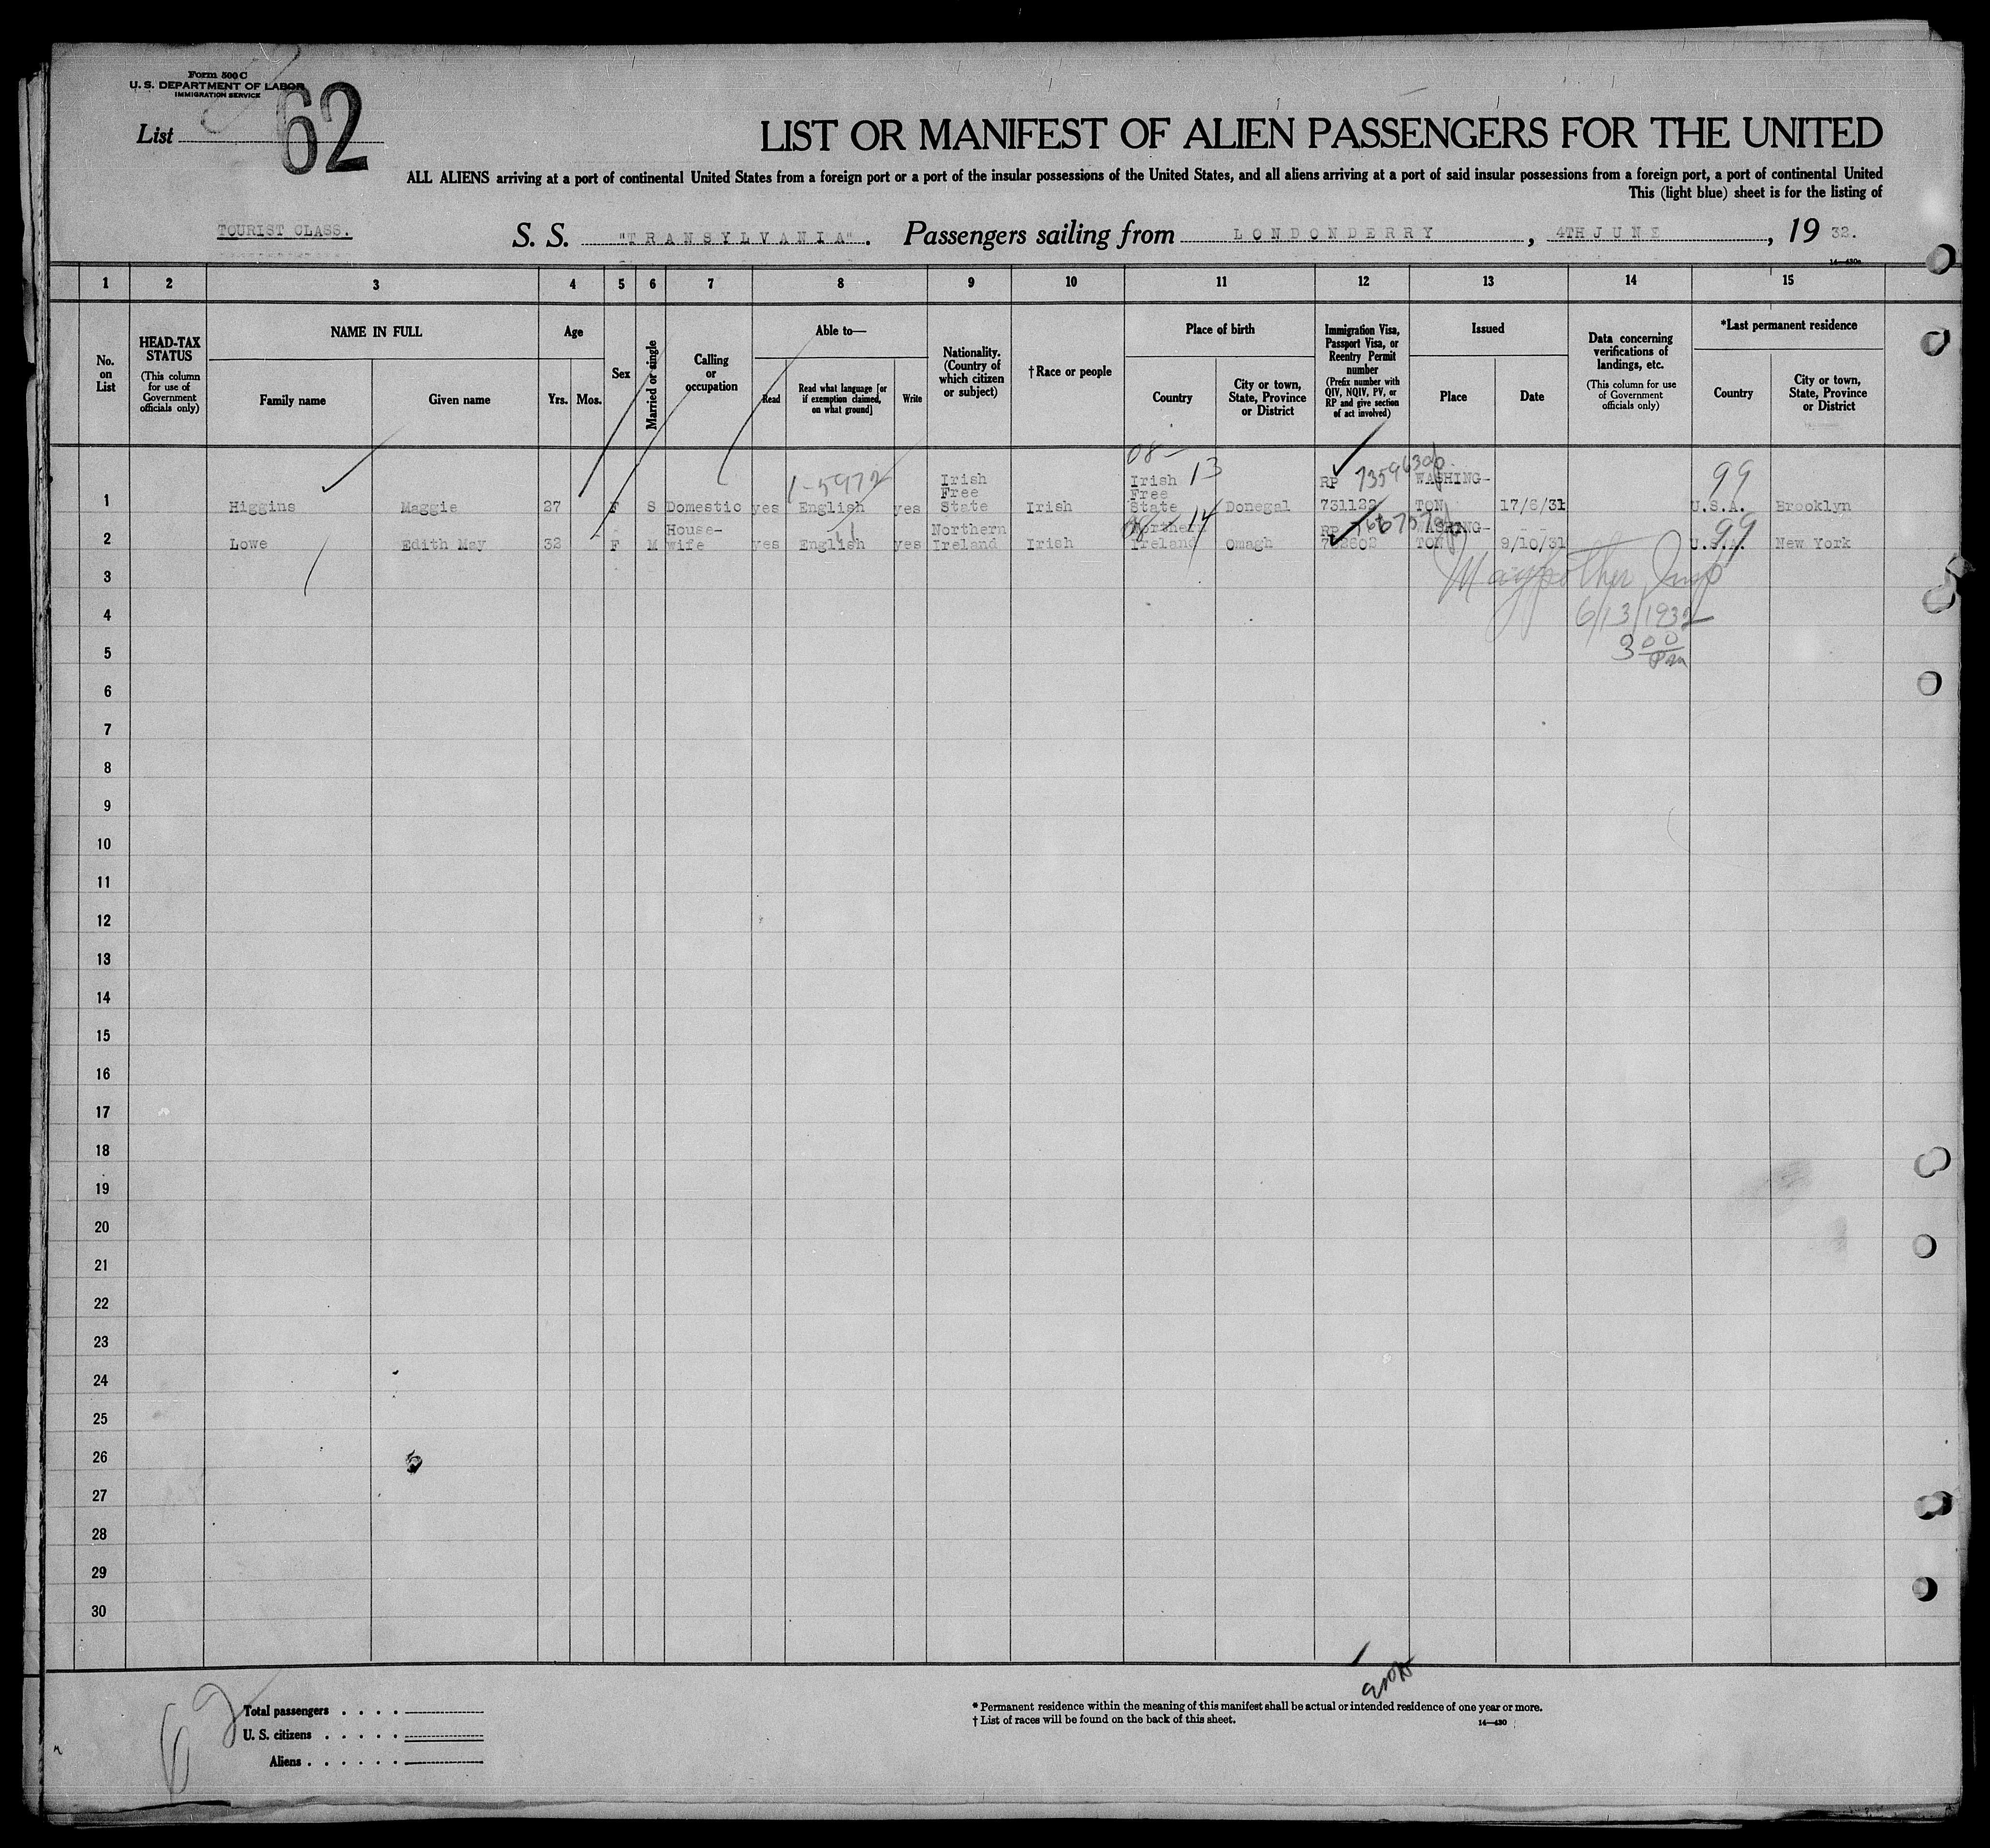 Form 500 C
U. S. DEPARTMENT OF LABOR
IMMIGRATION SERVICE
List 62
LIST OR MANIFEST OF ALIEN PASSENGERS FOR THE UNITED
ALL ALIENS arriving at a port of continental United States from a foreign port or a port of the insular possessions of the United States, and all aliens arriving at a port of said insular possessions from a foreign port, a port of continental United
This (light blue) sheet is for the listing of
TOURIST CLASS. S. S. "TRANSYLVANIA". Passengers sailing from LONDONDERRY, 4TH JUNE, 1932.
14—430a
1 2 3 4 5 6 7 8 9 10 11 12 13 14 15
No. on List
HEAD-TAX STATUS (This column for use of Government officials only)
NAME IN FULL
Family name
Given name
Age
Yrs. Mos.
Sex
Married or single
Calling or occupation
Able to—
Read
Read what language [or if exemption claimed, on what ground]
Write
Nationality. (Country of which citizen or subject)
†Race or people
Place of birth
Country
City or town, State, Province or District
Immigration Visa, Passport Visa, or Reentry Permit number (Prefix number with QIV, NQIV, PV, or RP and give section of act involved)
Issued
Place
Date
Data concerning verifications of landings, etc. (This column for use of Government officials only)
*Last permanent residence
Country
City or town, State, Province or District
08- 13 99
1-5972
1 Higgins Maggie 27 F S Domestic yes English yes Irish Free State Irish Irish Free State Donegal RP 731122 WASHING-TON 17/6/31 U.S.A. Brooklyn
14 99
2 Lowe Edith May 32 F M House-wife yes English yes Northern Ireland Irish Northern Ireland Omagh RP WASHING-TON 9/10/31 U.S.A. New York
3
4 6/13/1932
5 3 00 Pm
6
7
8
9
10
11
12
13
14
15
16
17
18
19
20
21
22
23
24
25
26
27
28
29
30
62
Total passengers . . . .
U. S. citizens . . . . .
Aliens . . . . . .
* Permanent residence within the meaning of this manifest shall be actual or intended residence of one year or more.
† List of races will be found on the back of this sheet.
14—430